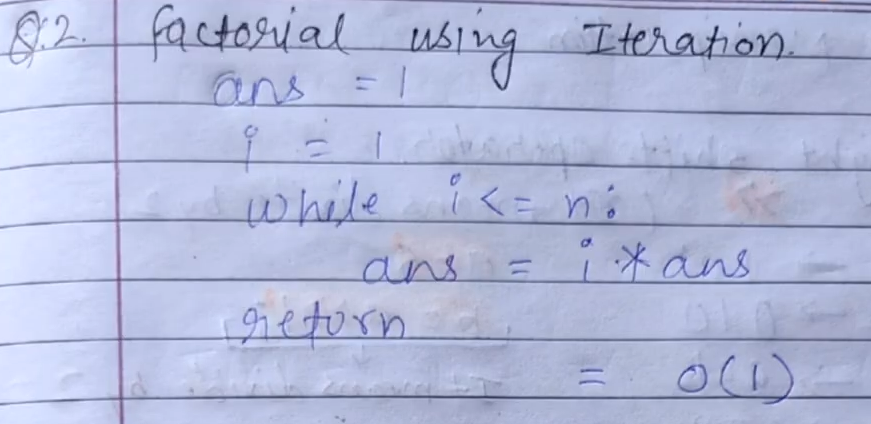 Q.2. factorial using Iteration.
ans = 1
i = 1
while i <= n:
ans = i * ans
return
= O(1)